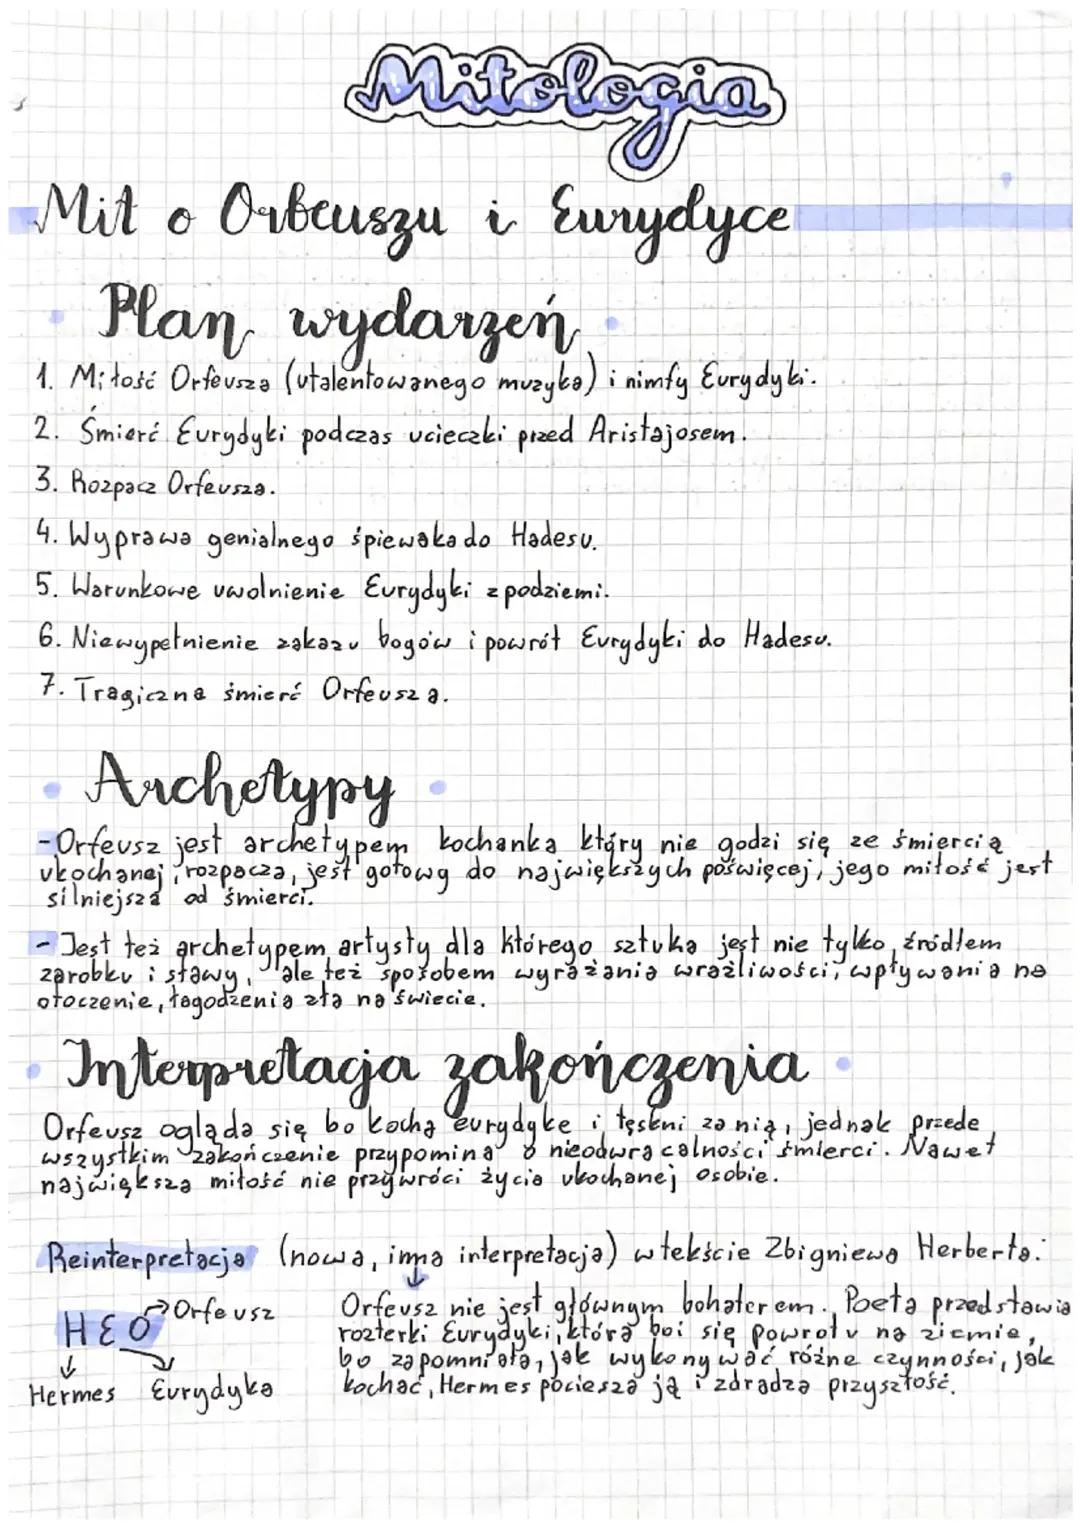 Mitologia
Mit o Orfeuszu i Eurydyce
Plan wydarzeń
1. Miłość Orfeusza (utalentowanego muzyka) i nimfy Eurydyki.
2. Śmierć Eurydyki podczas ucieczki przed Aristajosem.
3. Rozpacz Orfeusza.
4. Wyprawa genialnego śpiewaka do Hadesu.
5. Warunkowe uwolnienie Eurydyki z podziemi.
6. Niewypełnienie zakazu bogów i powrót Eurydyki do Hadesu.
7. Tragiczna śmierć Orfeusza.
Archetypy
- Orfeusz jest archetypem kochanka który nie godzi się ze śmiercią
ukochanej, rozpacza, jest gotowy do największych poświęcej, jego miłość jest
silniejsza od śmierci.
- Jest też archetypem artysty dla którego sztuka jest nie tylko źródłem
zarobku i sławy, ale też sposobem wyrażania wrażliwości, wpływania na
otoczenie, łagodzenia zła na świecie.
Interpretacja zakończenia
Orfeusz ogląda się bo kocha eurydykę i tęskni za nią, jednak przede
wszystkim zakończenie przypomina o nieodwracalności śmierci. Nawet
największa miłość nie przywróci życia ukochanej osobie.
Reinterpretacja (nowa, inna interpretacja) w tekście Zbigniewa Herberta.
H E O Orfeusz
Hermes Eurydyka
Orfeusz nie jest głównym bohaterem. Poeta przedstawia
rozterki Eurydyki, która boi się powrotu na ziemię,
bo zapomniała, jak wykonywać różne czynności, jak
kochać, Hermes pociesza ją i zdradza przyszłość.